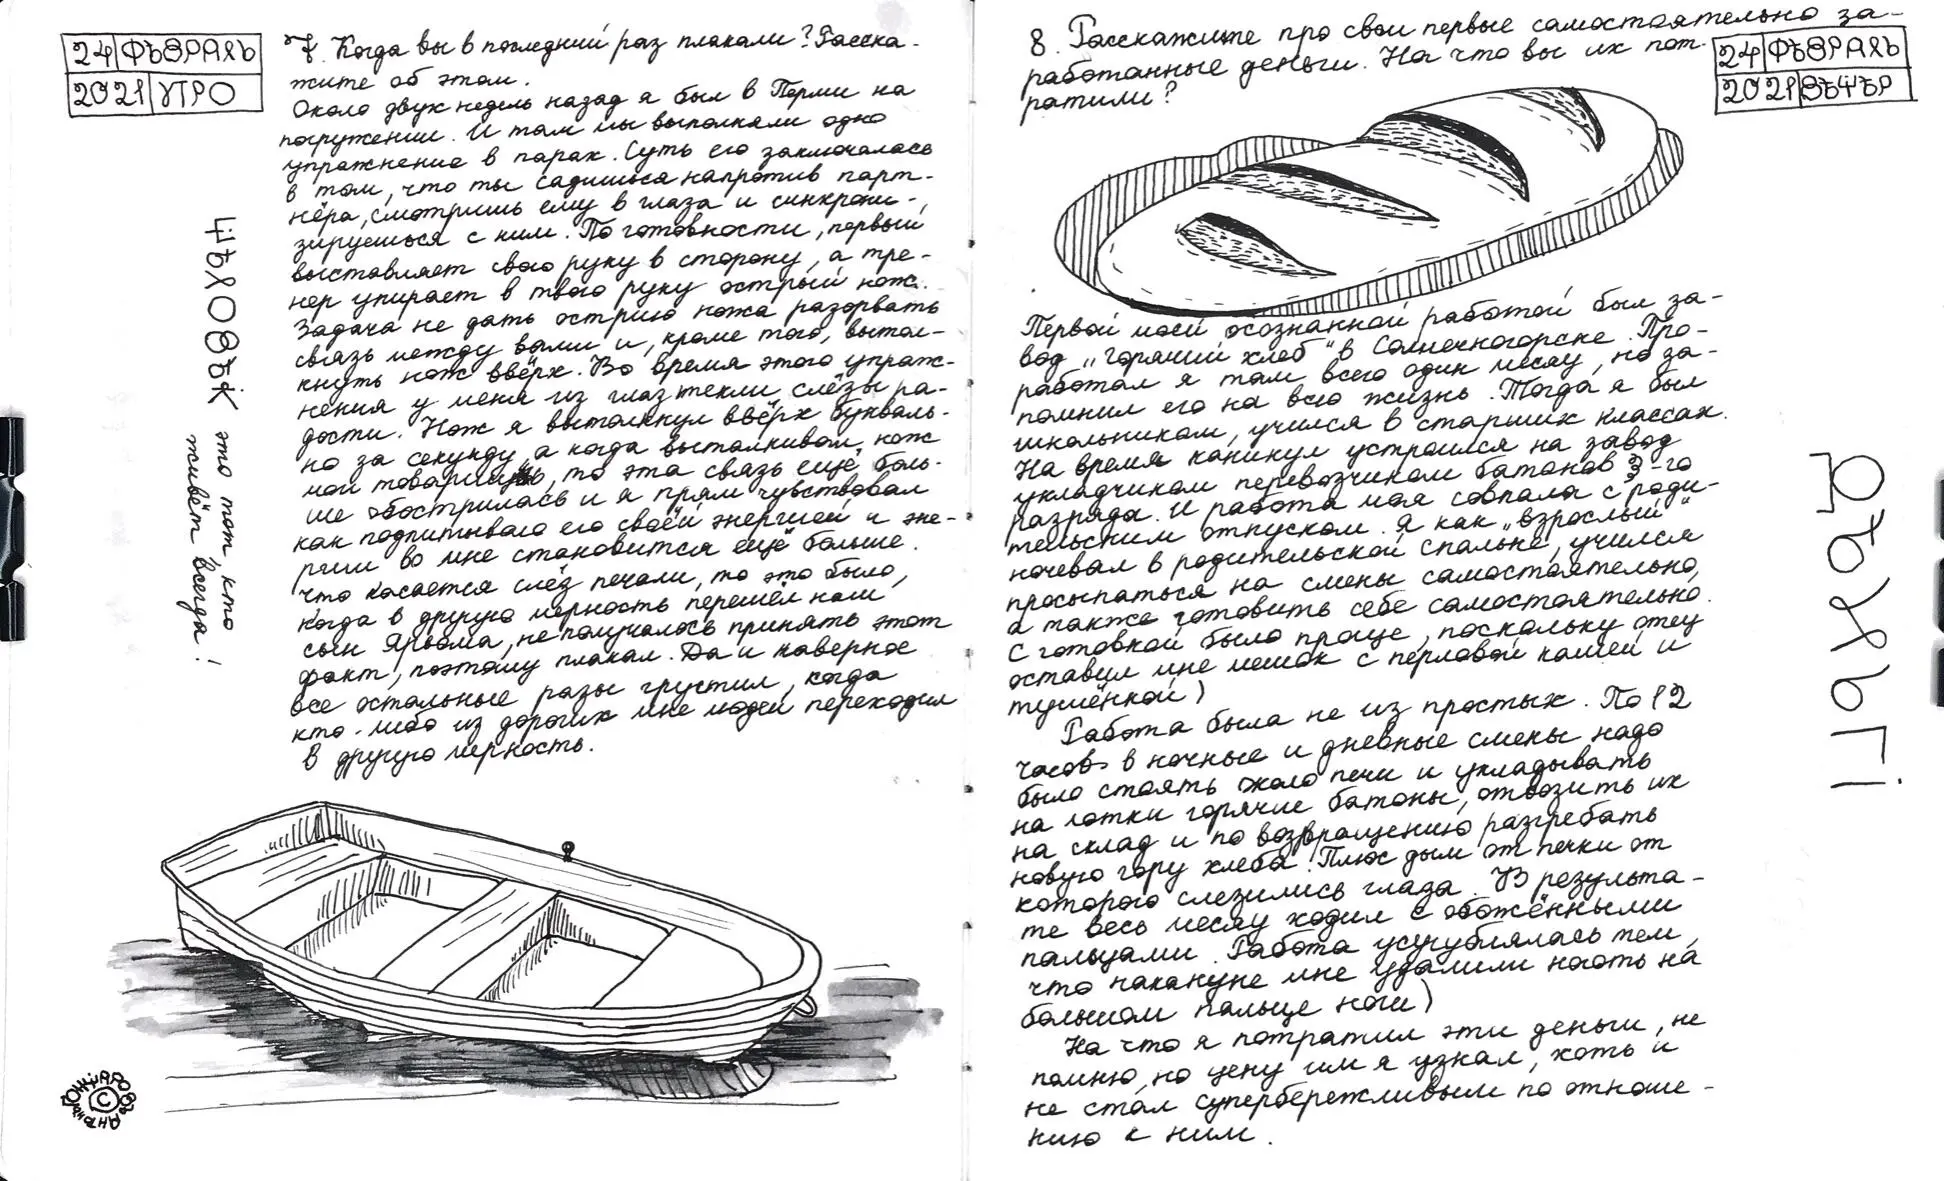 24 ФЪВРАЛЬ
2021 УТРО
7. Когда вы в последний раз плакали? Расска-
жите об этом.
Около двух недель назад я был в Перми на
погружении. И там мы выполняли одно
упражнение в парах. Суть его заключалась
в том, что ты садишься напротив парт-
нёра, смотришь ему в глаза и синхрони-
зируешься с ним. По готовности, первый
выставляет свою руку в сторону, а тре-
нер упирает в твою руку острый нож.
Задача не дать острию ножа разорвать
связь между вами и, кроме того, вытол-
кнуть нож вверх. Во время этого упраж-
нения у меня из глаз текли слёзы ра-
дости. Нож я вытолкнул вверх букваль-
но за секунду, а когда выталкивал нож
мой товарищ, то эта связь ещё боль-
ше обострилась и я прям чувствовал
как подпитываю его своей энергией и эне-
ргии во мне становится ещё больше.
Что касается слёз печали, то это было,
когда в другую мерность перешёл наш
сын Ярёма, не получалось принять этот
факт, поэтому плакал. Да и наверное
все остальные разы грустил, когда
кто-либо из дорогих мне людей переходил
в другую мерность.
ЧЪЛОВЪК это тот, кто
живёт всегда!
8. Расскажите про свои первые самостоятельно за-
работанные деньги. На что вы их пот-
ратили?
24 ФЪВРАЛЬ
2021 ВЪЧЪР
Первой моей осознанной работой был за-
вод „Горячий хлеб" в Солнечногорске. Про-
работал я там всего один месяц, но за-
помнил его на всю жизнь. Тогда я был
школьником, учился в старших классах.
На время каникул устроился на завод
укладчиком перевозчиком батонов 3-го
разряда. И работа моя совпала с роди-
тельским отпуском. Я как „взрослый"
ночевал в родительской спальне, учился
просыпаться на смены самостоятельно,
а также готовить себе самостоятельно.
С готовкой было проще, поскольку отец
оставил мне мешок с перловой кашей и
тушёнкой)
Работа была не из простых. По 12
часов в ночные и дневные смены надо
было стоять около печи и укладывать
на лотки горячие батоны, отвозить их
на склад и по возвращению разгребать
новую гору хлеба. Плюс дым от печки от
которого слезились глаза. В результа-
те весь месяц ходил с обожжёнными
пальцами. Работа усугублялась тем,
что накануне мне удалили ноготь на
большом пальце ноги)
На что я потратил эти деньги, не
помню, но цену им я узнал, хоть и
не стал супербережливым по отноше-
нию к ним.